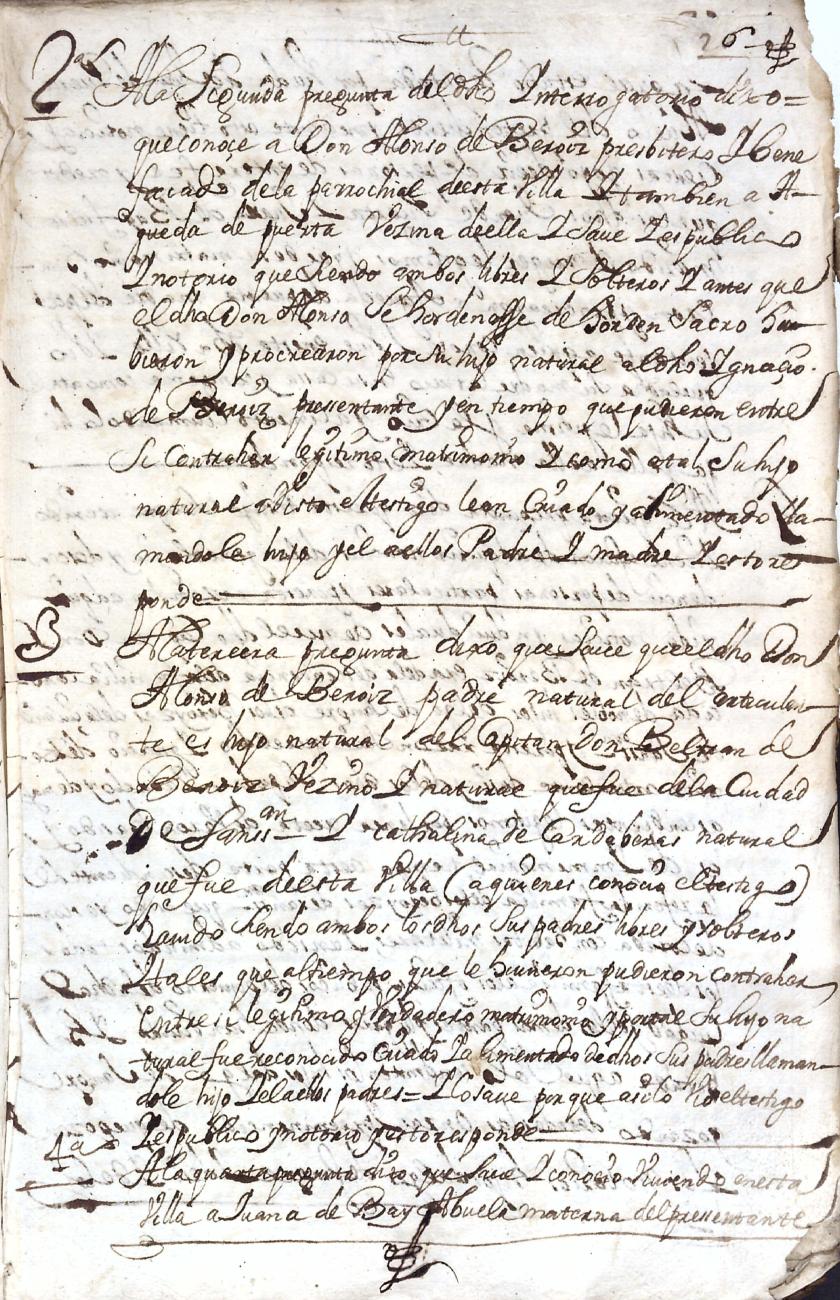 26
2ª A la Segunda pregunta del dho Interrogatorio dixo=
que conoçe a Don Alonso de Beroiz presbitero Y bene
ficiado de la parrochial de esta Villa Y tambien a A-
gueda de puerta Vezina de ella Y Save Y es publico
Y notorio que siendo ambos libres Y Solteros Y antes que
el dho Don Alonso Se hordenasse de horden Sacro hu-
bieron y procrearon por su hijo natural al dho Ignaçio
de Beroiz pressentante y en tiempo que pudieron entre
Si Contraher legitimo matrimonio Y como a tal Su hijo
natural a bisto el testigo le an Criado y alimentado lla-
mandole hijo y el a ellos Padre Y madre Y esto res
ponde
3 A la tercera pregunta dixo que Save que el dho Don
Alonso de Beroiz padre natural del articulan-
te es hijo natural del Capitan Don Beltran de
Beroiz Vezino Y natural que fue de la Ciudad
De Sanssan Y Cathalina de Cardaberas natural
que fue de esta Villa (a quienes conocio el testigo)
havido siendo ambos los dhos Sus padres libres y solteros
Y tales que al tiempo que le huvieron pudieron contraher
Entre si legitimo y berdadero matrimonio y por tal Su hijo na
tural fue reconocido Criado Y alimentado de dhos Sus padres llaman-
dole hijo Y el a ellos padres= Y lo save porque asi lo Vio el testigo
Y es publico y notorio y esto responde
4ª A la quarta pregunta dixo que Save Y conocio Viviendo en esta
Villa a Juana de Bay Abuela materna del pressentante